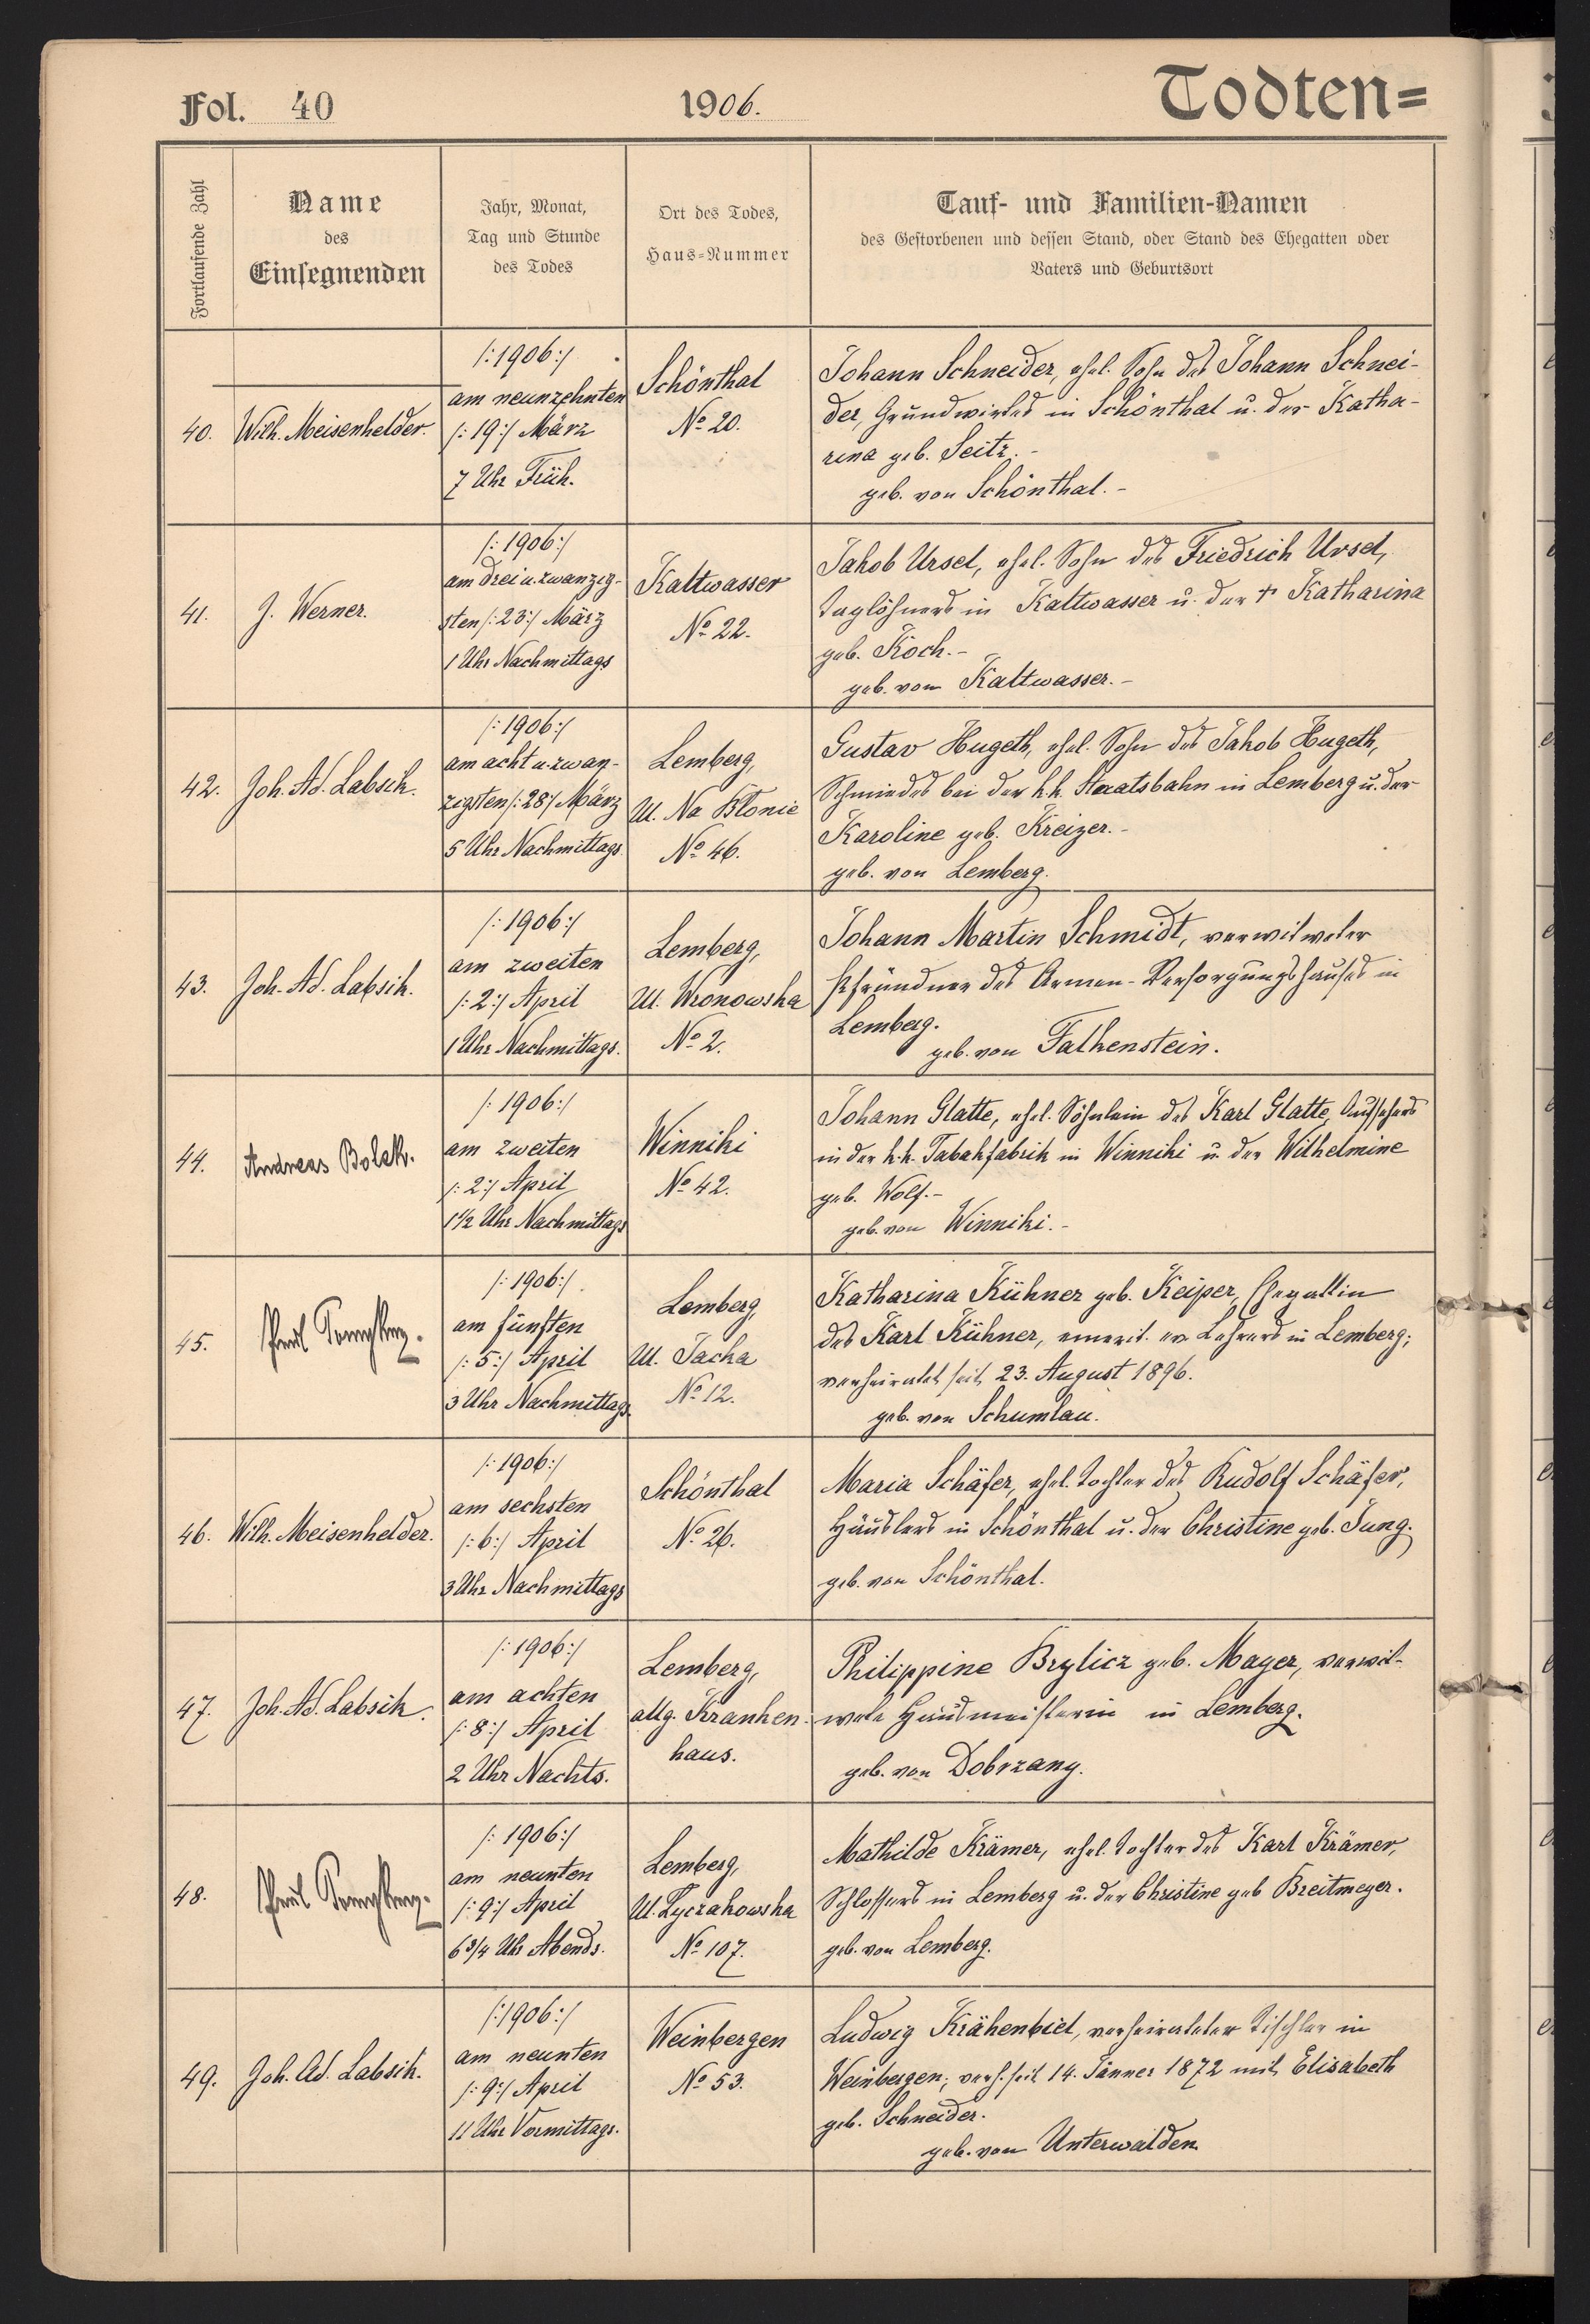 Fol. 40
1906.
Todten=
Fortlaufende Zahl
Name
des
Einsegnenden
Jahr, Monat,
Tag und Stunde
des Todes
Ort des Todes,
Haus-Nummer
Tauf- und Familien-Namen
des Gestorbenen und dessen Stand, oder Stand des Ehegatten oder
Vaters und Geburtsort
40.
Wilh. Meisenhelder.
/:1906:/
am neunzehnten
/:19:/ März
7 Uhr Früh.
Schönthal
No 20.
Johann Schneider, ehel. Sohn des Johann Schnei-
der, Grundwirtes in Schönthal u. der Katha-
rina geb. Seitz.-
geb. von Schönthal.-
41.
J. Werner.
/:1906:/
am drei u. zwanzig-
sten /:23:/ März
1 Uhr Nachmittags
Kaltwasser
No 22.
Jakob Ursel, ehel. Sohn des Friedrich Ursel,
Taglöhners in Kaltwasser u. der † Katharina
geb. Koch.-
geb. von Kaltwasser.-
42.
Joh. Ad. Labsik.
/:1906:/
am acht u. zwan-
zigsten /:28:/ März
5 Uhr Nachmittags.
Lemberg,
Ul. Na Błonie
No 46.
Gustav Hugeth, ehel. Sohn des Jakob Hugeth,
Schmiedes bei der k.k. Staatsbahn in Lemberg u. der
Karoline geb. Kreizer.-
geb. von Lemberg.
43.
Joh. Ad. Labsik.
/:1906:/
am zweiten
/:2:/ April
1 Uhr Nachmittags.
Lemberg,
Ul. Wronowska
No 2.
Johann Martin Schmidt, verwitweter
Pfründner des Armen-Versorgungshauses in
Lemberg.
geb. von Falkenstein.
44.
Andreas Bolek.
/:1906:/
am zweiten
/:2:/ April
1½ Uhr Nachmittags
Winniki
No 42.
Johann Glatte, ehel. Söhnlein des Karl Glatte, Aufsehers
in der k.k. Tabakfabrik in Winniki u. der Wilhelmine
geb. Wolf.-
geb. von Winniki.-
45.
/:1906:/
am fünften
/:5:/ April
3 Uhr Nachmittags.
Lemberg,
Ul. Jacka
No 12.
Katharina Kühner geb. Keiper, Ehegattin
des Karl Kühner, emerit. ev. Lehrers in Lemberg;
verheiratet seit 23. August 1896.
geb. von Schumlau.
46.
Wilh. Meisenhelder.
/:1906:/
am sechsten
/:6:/ April
3 Uhr Nachmittags
Schönthal
No 26.
Maria Schäfer, ehel. Tochter des Rudolf Schäfer,
Häuslers in Schönthal u. der Christine geb. Jung.
geb. von Schönthal.
47.
Joh. Ad. Labsik.
/:1906:/
am achten
/:8:/ April
2 Uhr Nachts.
Lemberg,
allg. Kranken-
haus.
Philippine Brylicz geb. Mayer, verwit-
wete Hausmeisterin in Lemberg.
geb. von Dobrzany.
48.
/:1906:/
am neunten
/:9:/ April
6¾ Uhr Abends.
Lemberg,
Ul. Łyczakowska
No 107.
Mathilde Krämer, ehel. Tochter des Karl Krämer,
Schlossers in Lemberg u. der Christine geb Breitmeyer.
geb. von Lemberg.
49.
Joh. Ad. Labsik.
/:1906:/
am neunten
/:9:/ April
11 Uhr Vormittags.
Weinbergen
No 53.
Ludwig Krähenbiel, verheirateter Tischler in
Weinbergen; verh. seit 14. Jänner 1872 mit Elisabeth
geb. Schneider.
geb. von Unterwalden.